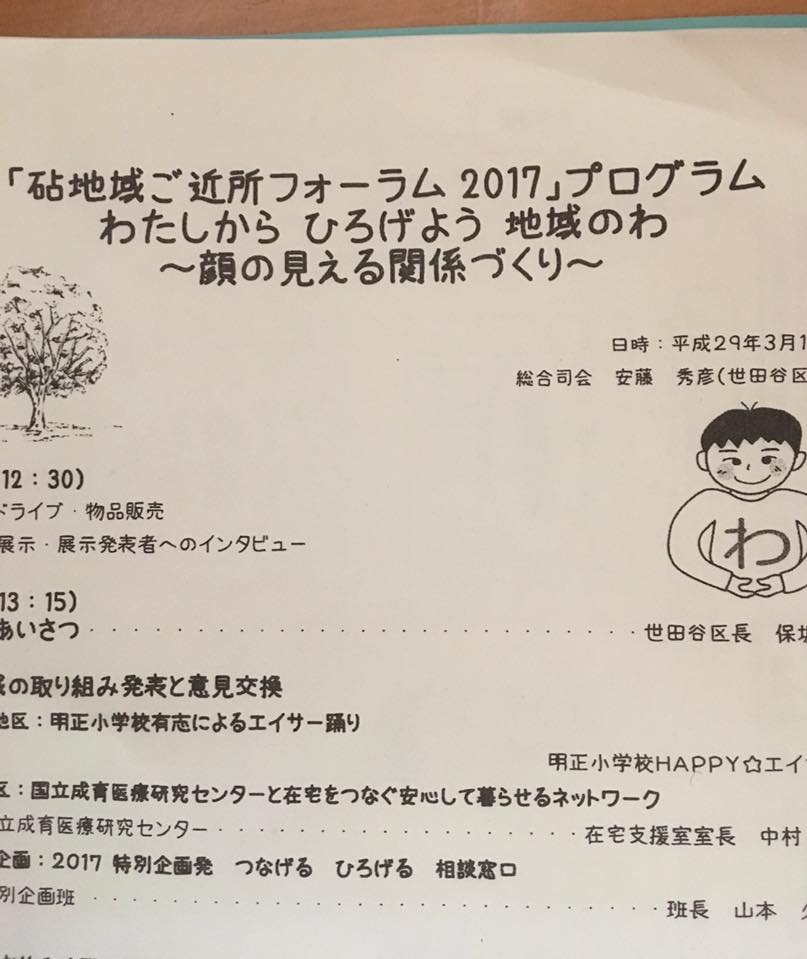 「砧地域ご近所フォーラム 2017」プログラム
わたしから ひろげよう 地域のわ
～顔の見える関係づくり～
日時：平成29年3月1
総合司会　安藤　秀彦(世田谷区
12：30)
ドライブ・物品販売
展示・展示発表者へのインタビュー
わ
13：15)
あいさつ・・・・・・・・・・・・・・・・・・・・世田谷区長　保坂
域の取り組み発表と意見交換
地区：明正小学校有志によるエイサー踊り
明正小学校HAPPY☆エイサ
区：国立成育医療研究センターと在宅をつなぐ安心して暮らせるネットワーク
立成育医療研究センター・・・・・・・・・・・・・在宅支援室室長　中村
企画：2017 特別企画発　つなげる　ひろげる　相談窓口
別企画班 ・・・・・・・・・・・・・・・・・・・・班長　山本